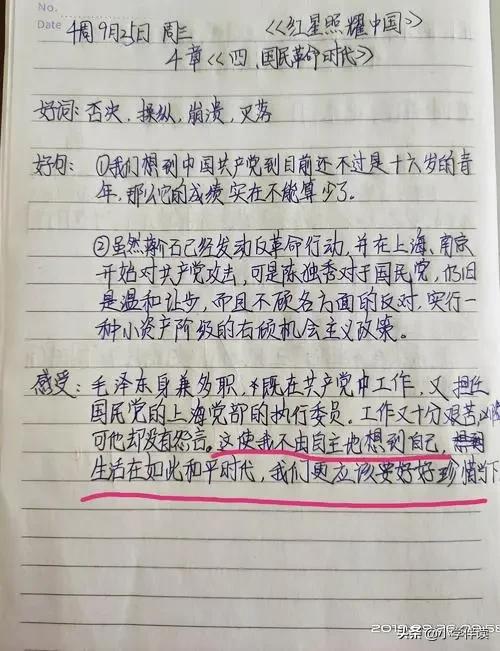 No.
Date
4周9月25日 周三 《红星照耀中国》
4章《四、国民革命时代》
好词:否决,操纵,崩溃,没落
好句: ①我们想到中国共产党到目前还不过是十六岁的青
年,那么它的成绩实在不能算少了。
②虽然蒋石已经发动反革命行动,并在上海、南京
开始对共产党攻击,可是陈独秀对于国民党,仍旧
是温和让步,而且不顾各方面的反对,实行一
种小资产阶级的右倾机会主义政策。
感受:毛泽东身兼多职,既在共产党中工作,又担任
国民党的上海党部的执行委员。工作又十分艰苦
可他却没有怨言。这使我不由自主地想到自己,
生活在如此和平时代,我们更应该要好好珍惜当下
头条 @小学伴读